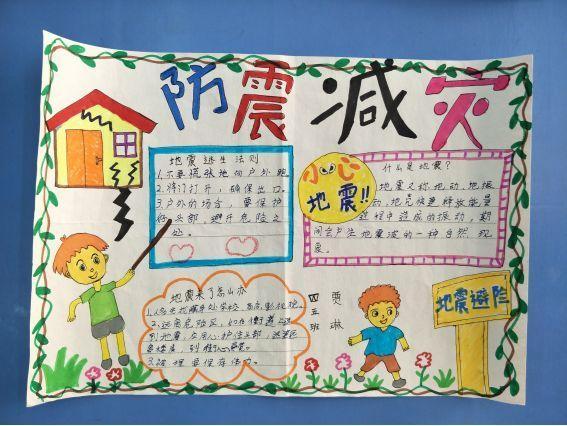 防震减灾
地震逃生法则
1.不要慌张地向户外跑
2.将门打开，确保出口。
3.户外的场合，要保护
好头部，避开危险之
处。
小心
地震!!
什么是地震?
地震又称地动、地振
动，地壳快速释放能量
过程中造成的振动，期
间会产生地震波的一种自然现
象。
地震来了怎么办
3.被埋要保存体力。
四五班
贾琳
地震避险